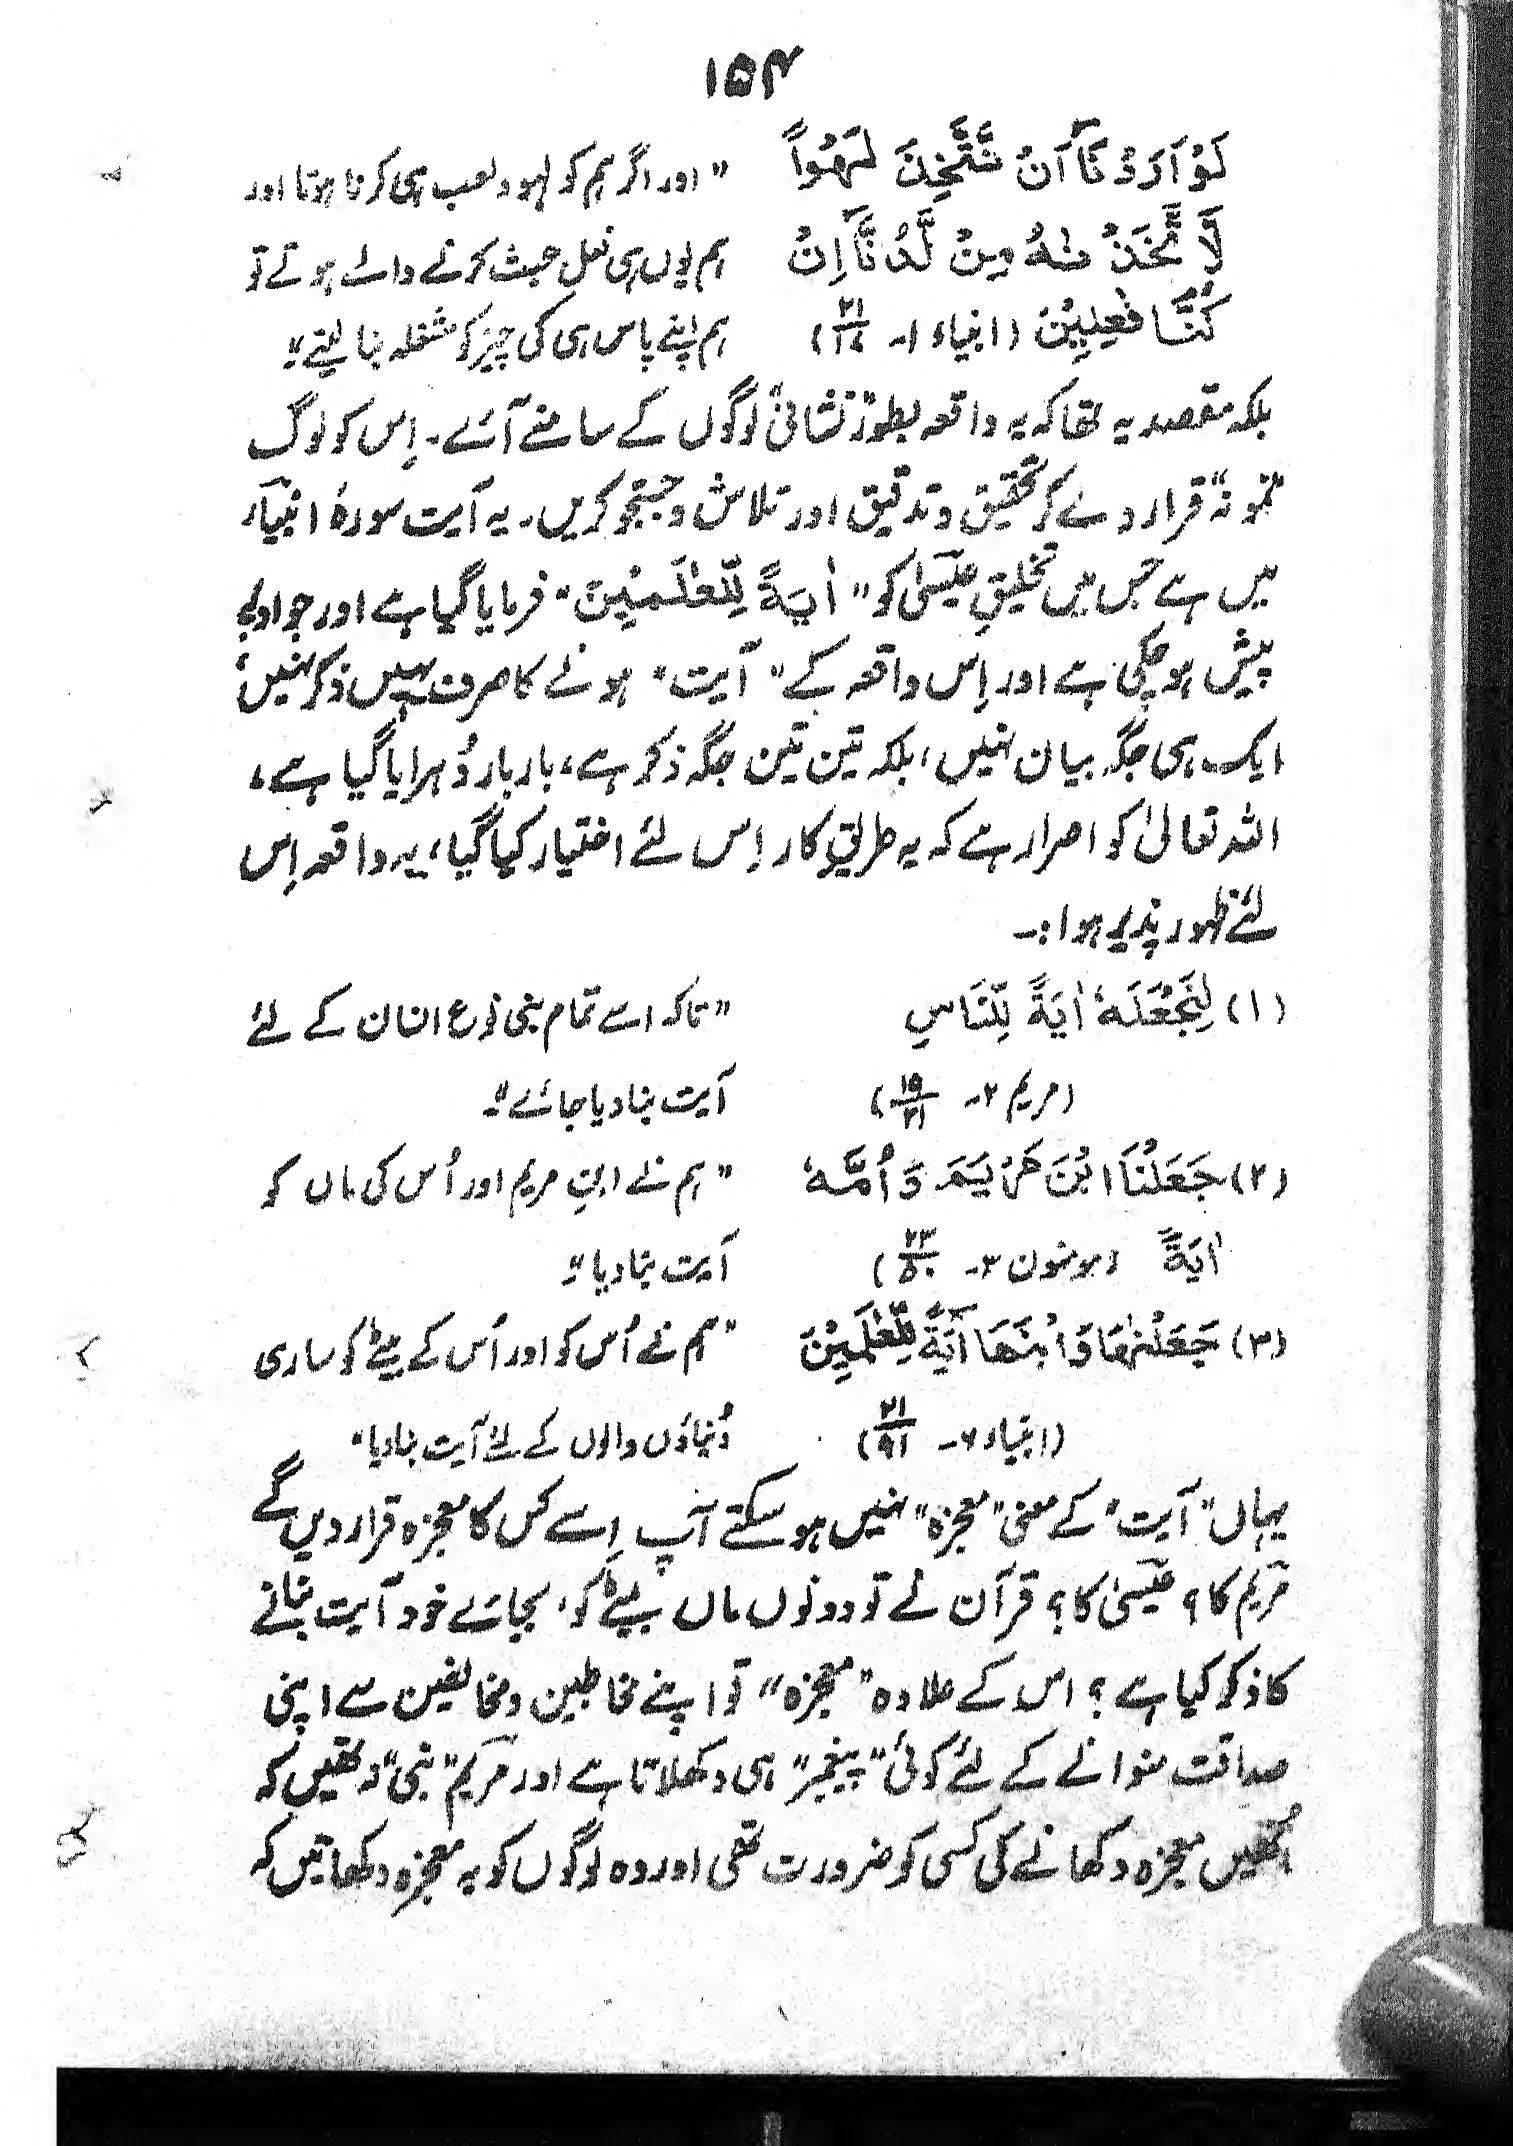 ۱۵۴
لَوْ اَرَدْنَآ اَنْ نَّتَّخِذَ لَهْوًا ”اور اگر ہم کو لہو و لعب ہی کرنا ہوتا اور
لَّاتَّخَذْنٰهُ مِنْ لَّدُنَّآ اِنْ ہم یوں ہی فعل عبث کرنے والے ہوتے تو
كُنَّا فٰعِلِيْنَ (انبیاء ۱۔ ۲۱/۱۷) ہم اپنے پاس ہی کی چیز کو مشغلہ بنا لیتے“۔
بلکہ مقصد یہ تھا کہ یہ واقعہ بطور ”نشانی“ لوگوں کے سامنے آئے۔ اِس کو لوگ
”نمونہ“ قرار دے کر تحقیق و تدقیق اور تلاش و جستجو کریں۔ یہ آیت سورۂ انبیاء
میں ہے جس میں تخلیقِ عیسیٰؑ کو ”اٰيَةً لِّلْعٰلَمِيْنَ“ فرمایا گیا ہے اور جو اوپر
پیش ہو چکی ہے اور اِس واقعہ کے ”آیت“ ہونے کا صرف یہیں ذکر نہیں،
ایک ہی جگہ بیان نہیں، بلکہ تین تین جگہ ذکر ہے، بار بار دُہرایا گیا ہے،
اللہ تعالیٰ کو اصرار ہے کہ یہ طریقِ کار اِس لئے اختیار کیا گیا، یہ واقعہ اِس
لئے ظہور پذیر ہوا :۔
(۱) لِنَجْعَلَهٗ اٰيَةً لِّلنَّاسِ ”تاکہ اسے تمام بنی نوع انسان کے لئے
(مریم ۲۔ ۱۹/۲۱) آیت بنا دیا جائے“۔
(۲) جَعَلْنَا ابْنَ مَرْيَمَ وَ اُمَّهٗ ”ہم نے ابنِ مریم اور اُس کی ماں کو
اٰيَةً (مومنون ۳۔ ۲۳/۵۰) آیت بنا دیا“۔
(۳) جَعَلْنٰهَا وَابْنَهَا آيَةً لِّلْعٰلَمِيْنَ ”ہم نے اُس کو اور اُس کے بیٹے کو ساری
(انبیاء ۶۔ ۲۱/۹۱) دُنیاؤں والوں کے لئے آیت بنا دیا“
یہاں ”آیت“ کے معنی ”معجزہ“ نہیں ہو سکتے آپ اِسے کس کا معجزہ قرار دیں گے
مریمؑ کا؟ عیسیٰؑ کا؟ قرآن نے تو دونوں ماں بیٹے کو، بجائے خود آیت بنانے
کا ذکر کیا ہے؟ اس کے علاوہ ”معجزہ“ تو اپنے مخاطبین و مخالفین سے اپنی
صداقت منوانے کے لئے کوئی ”پیغمبر“ ہی دکھلاتا ہے اور مریمؑ ”نبی“ نہ تھیں کہ
اُنھیں معجزہ دکھانے کی کسی کو ضرورت تھی اور وہ لوگوں کو یہ معجزہ دکھاتیں کہ